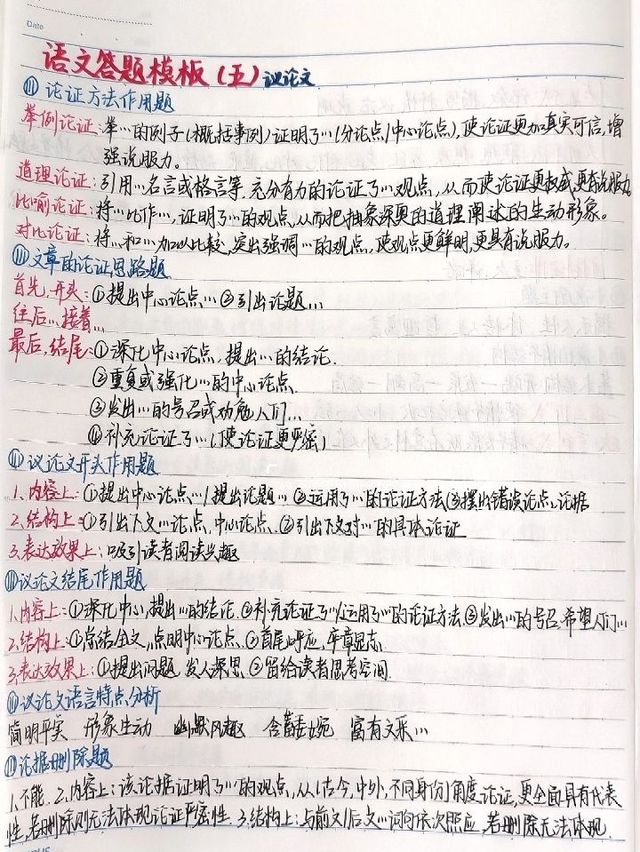 Date
语文答题模板（五）议论文
论证方法作用题
举例论证：举…的例子（概括事例）证明了…（分论点/中心论点），使论证更加真实可信，增
强说服力。
道理论证：引用…名言或格言等，充分有力的论证了…观点，从而使论证更权威,更有说服力
比喻论证：将…比作…，证明了…的观点，从而把抽象深奥的道理阐述的生动形象。
对比论证：将…和…加以比较，突出强调…的观点，使观点更鲜明，更具有说服力。
文章的论证思路题
首先，开头：①提出中心论点…②引出论题…
往后…接着…
最后，结尾：①深化中心论点，提出…的结论
②重复或强化…的中心论点
③发出…的号召或劝勉人们…
④补充论证了…（使论证更严密）
议论文开头作用题
1、内容上：①提出中心论点…/提出论题… ②运用了…的论证方法③摆出错误论点、论据
2、结构上：①引出下文…论点、中心论点、②引出下文对…的具体论证
3、表达效果上：吸引读者阅读兴趣
议论文结尾作用题
1、内容上：①深化中心，提出…的结论②补充论证了…/运用了…的论证方法③发出…的号召,希望人们…
2、结构上：①总结全文，点明中心论点②首尾呼应，卒章显志
3、表达效果上：①提出问题 发人深思②留给读者思考空间
议论文语言特点分析
简明平实 形象生动 幽默风趣 含蓄委婉 富有文采…
论据删除题
1、不能 2、内容上：该论据证明了…的观点，从（古今，中外，不同身份）角度论证，更全面具有代表
性，若删除则无法体现论证严密性 3、结构上：与前文/后文…词句依次照应，若删除无法体现